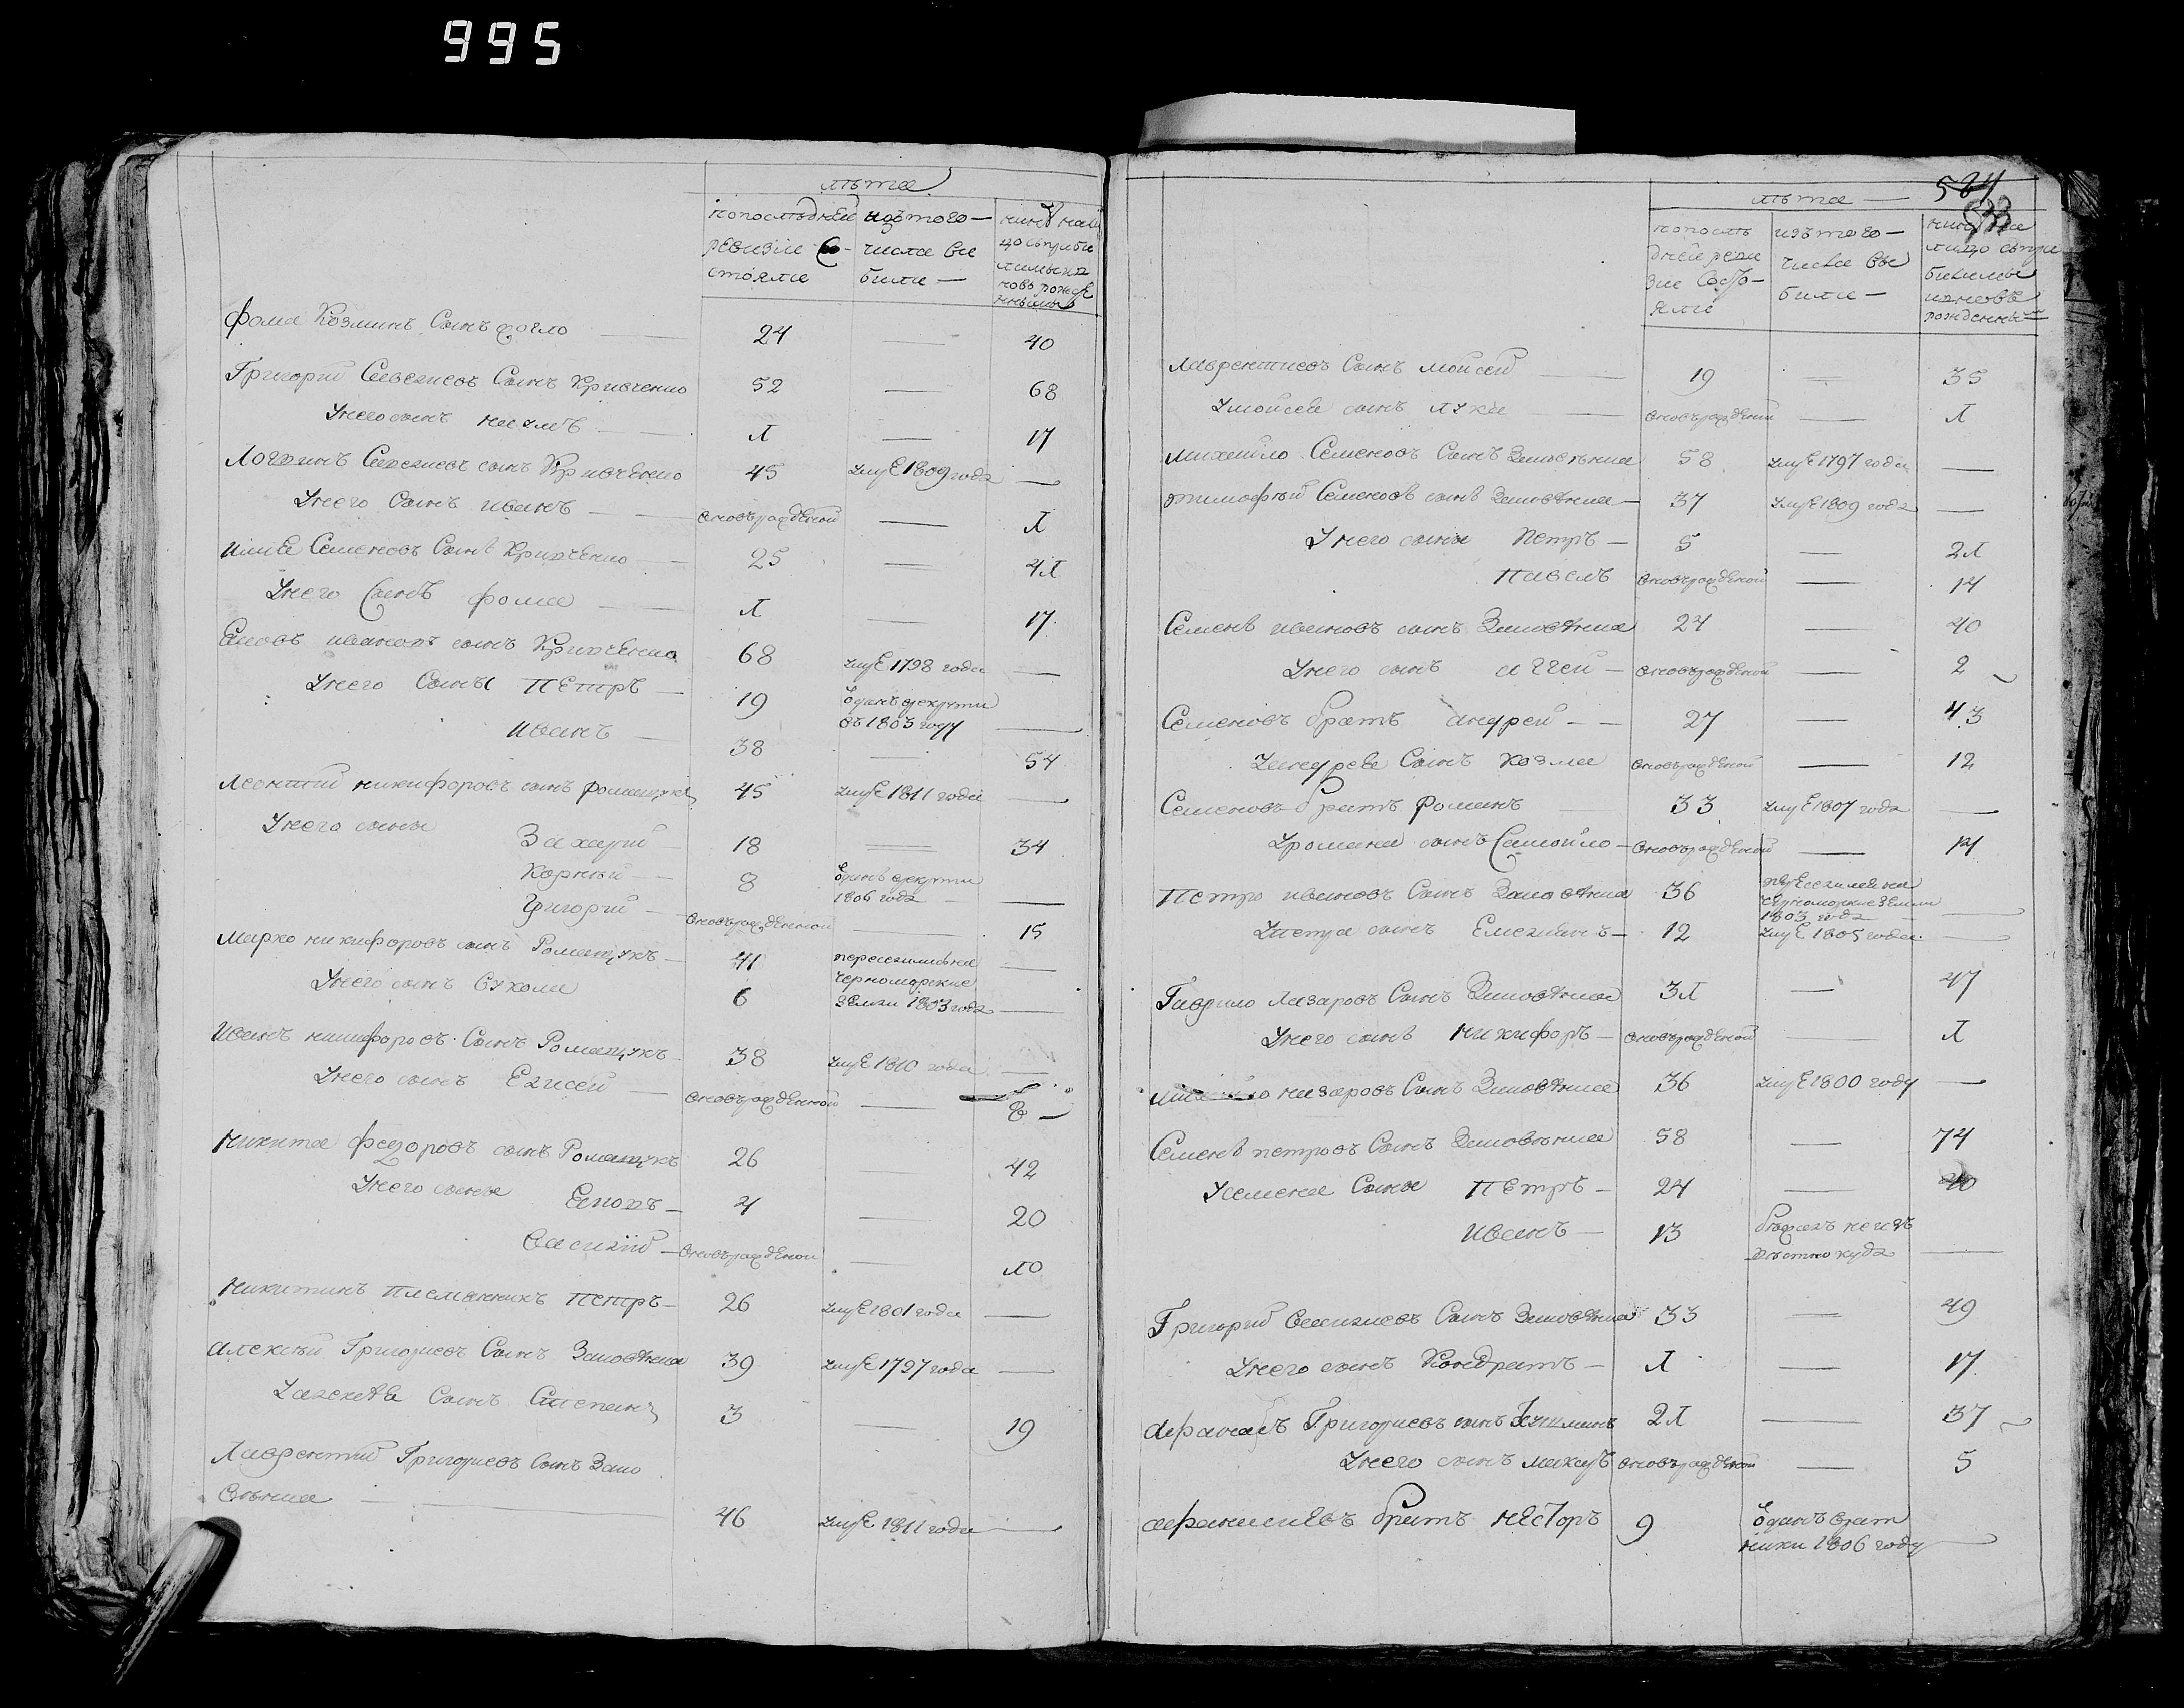 995
лѣта
по последней ревизіи состояли
изъ того числа выбыли
ныне на лицо съ прибылыми и новь рожденными
Фома Козминъ сынъ 24 — 40
Григорий Савелиевъ сынъ Кривченко 52 — 68
У него сынъ Наумъ Л — 17
Логвинъ Савелиевъ сынъ Кривченко 45 умре 1809 года —
У него сынъ Иванъ вновърожденой — Л
Семеновъ сынъ Кривченко 25 — 4Л
У него сынъ Фома Л — 17
Яковъ Ивановъ сынъ Кривченко 68 умре 1798 года —
У него сыны Петръ 19 отданъ врекруты
въ 1803 году —
Иванъ 38 — 54
Леонтий Никифоровъ сынъ Романчукъ 45 умре 1811 года —
У него сыны
Захарий 18 — 34
Корний 8 отданъ врекруты
1806 года —
Григорий вновърожденной — 15
Марко Никифоровъ сынъ Романчукъ 41 переселились на —
Черноморские
У него сынъ Вукола 6 земли 1803 года —
Иванъ Никифоровъ сынъ Романчукъ 38 умре 1810 года —
У него сынъ Елисей вновърожденной —
Никита Федоровъ сынъ Романчукъ 26 — 42
У него сыны
Яковъ 4 — 20
Василий вновърожденой — Л0
Никитинъ племянникъ Петръ 26 умре 1801 года —
Алексей Григориевъ сынъ Заповѣтна 39 умре 1797 года —
У Алексея сынъ Степанъ 3 — 19
Лаврентий Григориевъ сынъ Запо
вѣтна — 46 умре 1811 года —
524
533
лѣта
по послѣдней ревизіи состояли
изъ того числа выбыли
ныне на лицо съ прибылыми и новь рожденными
Лаврентиевъ сынъ Мойсей 19 — 35
У Мойсея сынъ Лука вновърожденой — Л
Михайло Семеновъ сынъ Заповѣтна 58 умре 1797 года —
Тимофей Семеновъ сынъ Заповѣтна 37 умре 1809 года —
У него сыны Петръ 5 — 2Л
Павелъ вновърожденой — 14
Семенъ Ивановъ сынъ Заповѣтна 24 — 40
У него сынъ Аггей вновърожденой — 2
Семеновъ братъ Андрей 27 — 43
У Андрея сынъ Козма вновърожденой — 12
Семеновъ братъ Романъ 33 умре 1807 года —
У Романа сынъ Самойло вновърожденой — 14
Петро Ивановъ сынъ Заповѣтна 36 переселился на
Черноморские земли
1803 года —
У Петра сынъ Емелианъ 12 умре 1805 года —
Гаврило Лазаровъ сынъ Заповѣтна 3Л — 47
У него сынъ Никифоръ вновърожденой — Л
Лазаровъ сынъ Заповѣтна 36 умре 1800 году —
Семенъ Петровъ сынъ Заповѣтна 58 — 74
У Семена сыны Петръ 24 — 40
Иванъ 13 бежалъ неизъ
вѣстно куда —
Григорий Василиевъ сынъ Заповѣтна 33 — 49
У него сынъ Кондратъ Л — 17
Афанасъ Григориевъ сынъ 2Л — 37
У него сынъ вновърожденой — 5
Афанасиевъ братъ Несторъ 9 отданъ врат
ники 1806 году —